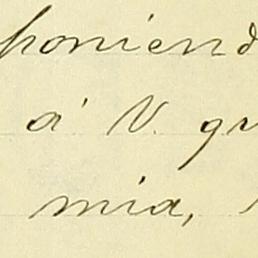 poniend
á V. gu
mia,